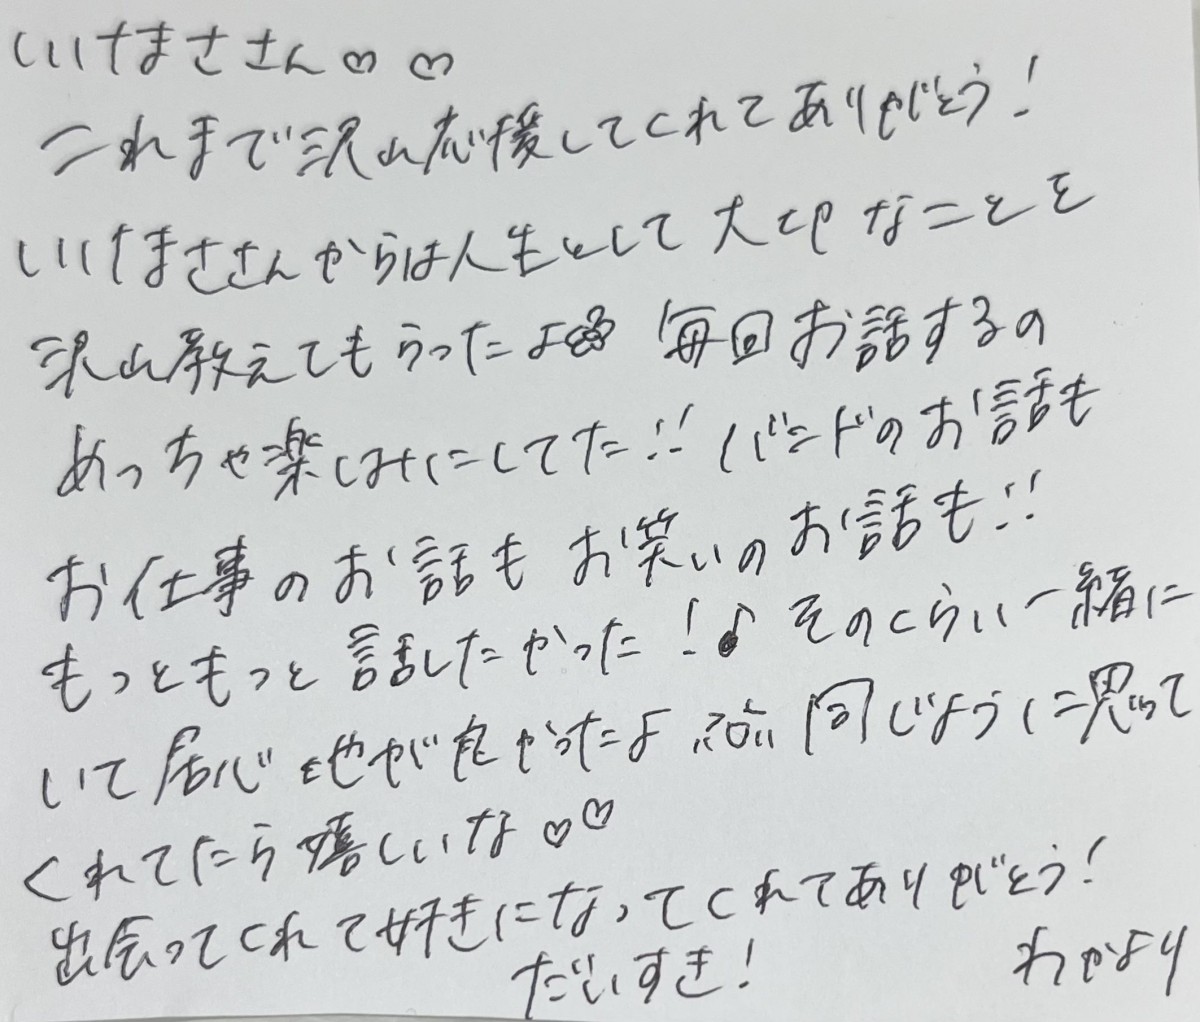 いけまささん♡♡
これまで沢山応援してくれてありがとう!
いけまささんからは人生として大切なことを
沢山教えてもらったよ 毎回お話するの
めっちゃ楽しみにしてた!! バンドのお話も
お仕事のお話もお笑いのお話も!!
もっともっと話したかった!♪ そのくらい一緒に
いて居心地が良かったよ 同じように思って
くれてたら嬉しいな♡♡
出会ってくれて好きになってくれてありがとう!
だいすき!
わかより